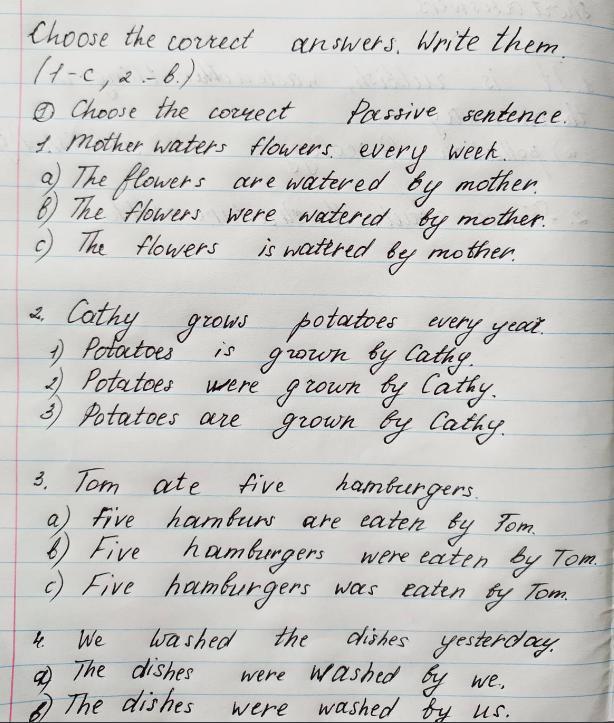 Choose the correct answers. Write them.
(1-c, 2.-b.)
① Choose the correct Passive sentence.
1. Mother waters flowers. every week.
a) The flowers are watered by mother.
b) The flowers were watered by mother.
c) The flowers is watered by mother.
2. Cathy grows potatoes every year.
1) Potatoes is grown by Cathy.
2) Potatoes were grown by Cathy.
3) Potatoes are grown by Cathy.
3. Tom ate five hamburgers.
a) Five hamburs are eaten by Tom.
b) Five hamburgers were eaten by Tom.
c) Five hamburgers was eaten by Tom.
4. We washed the dishes yesterday.
a) The dishes were washed by we.
b) The dishes were washed by us.